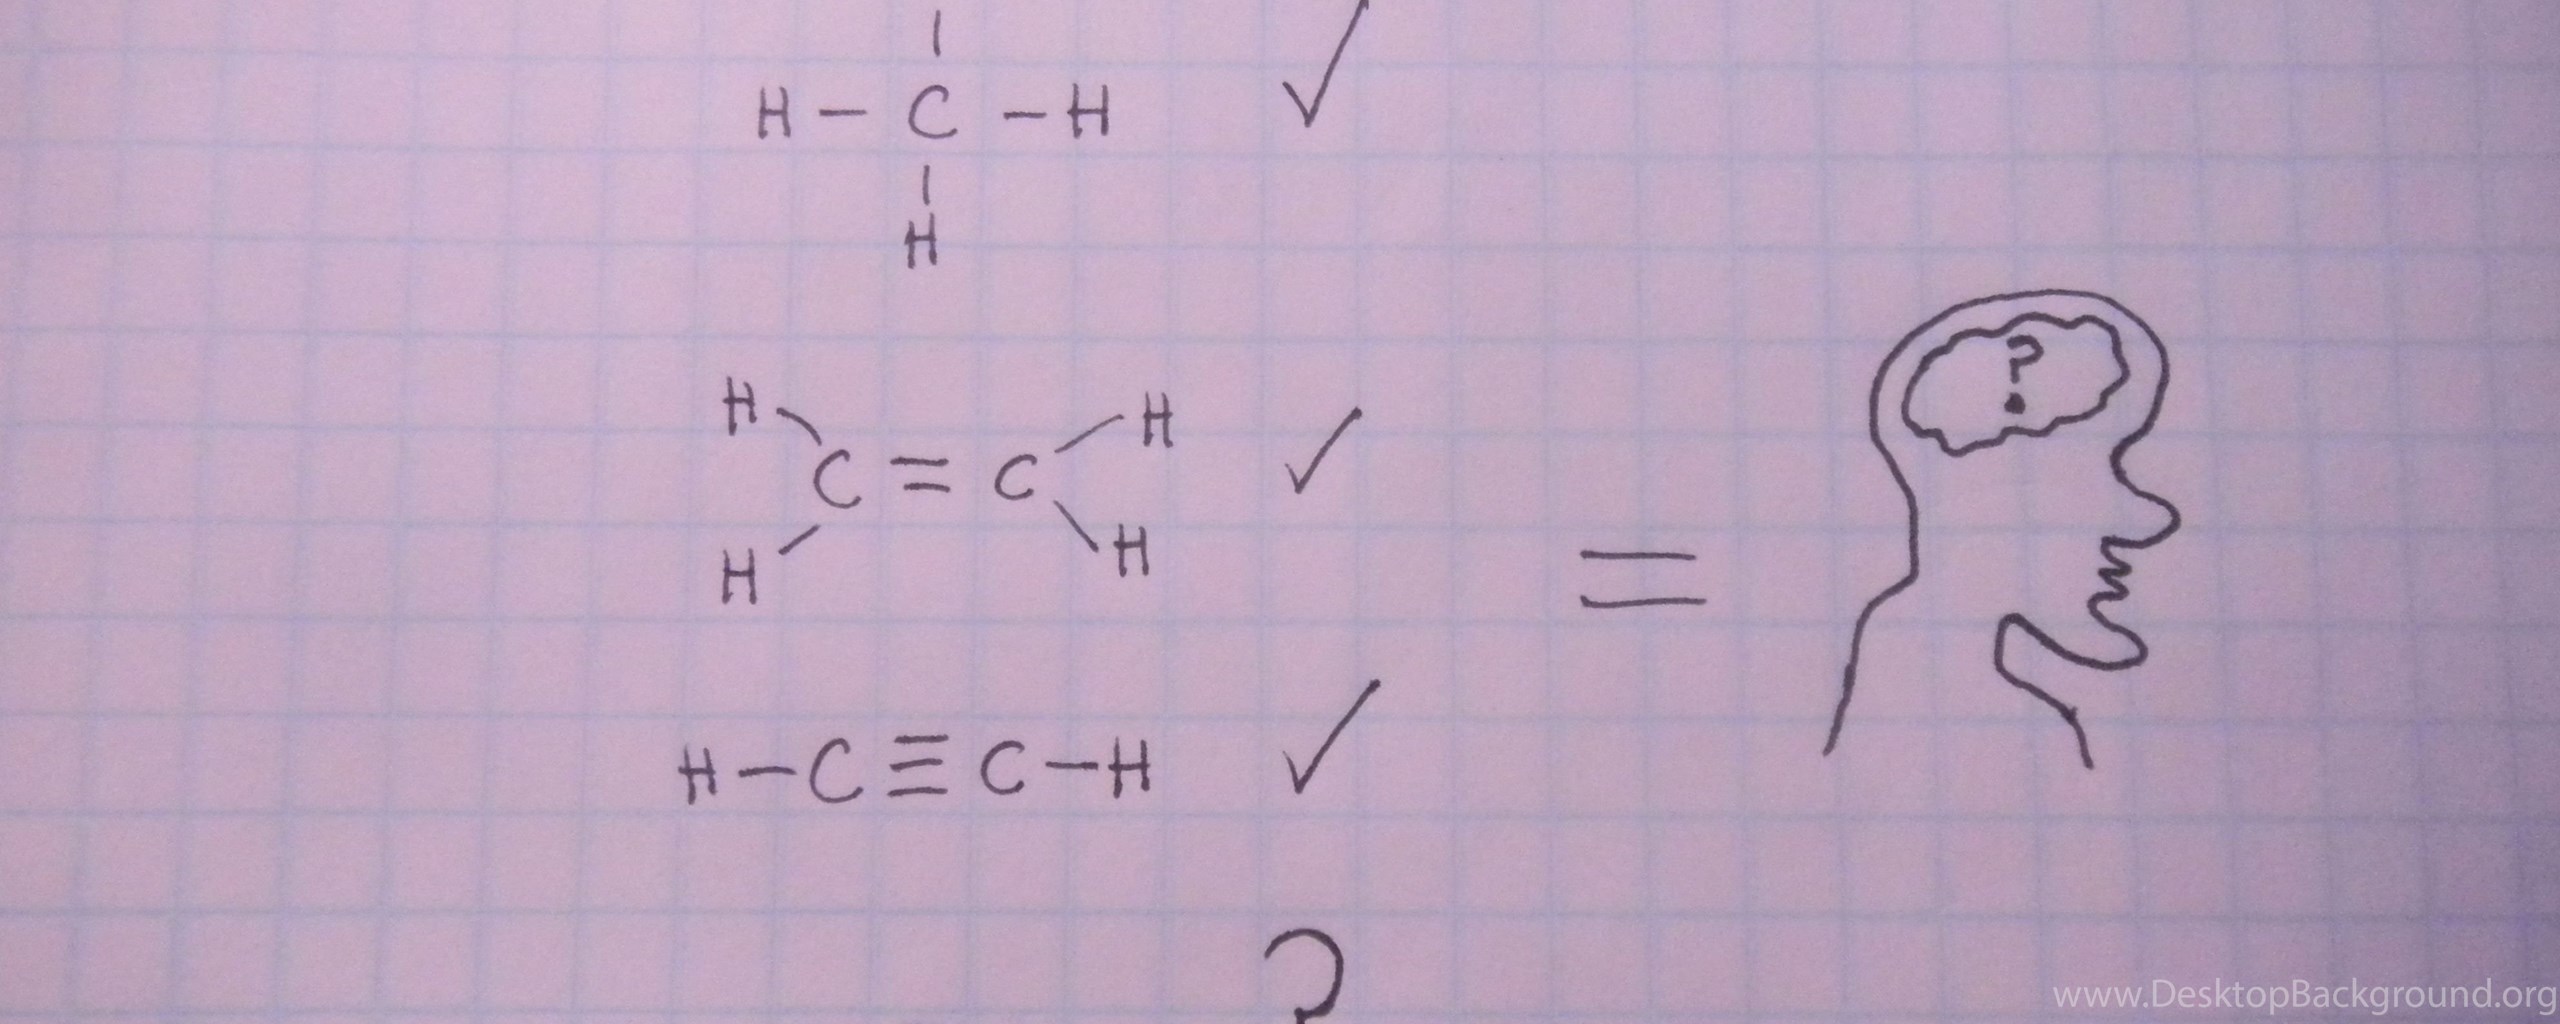 H – C – H ✓
H
H H
C = C ✓
H H
=
?
H – C ≡ C – H ✓
?
www.DesktopBackground.org